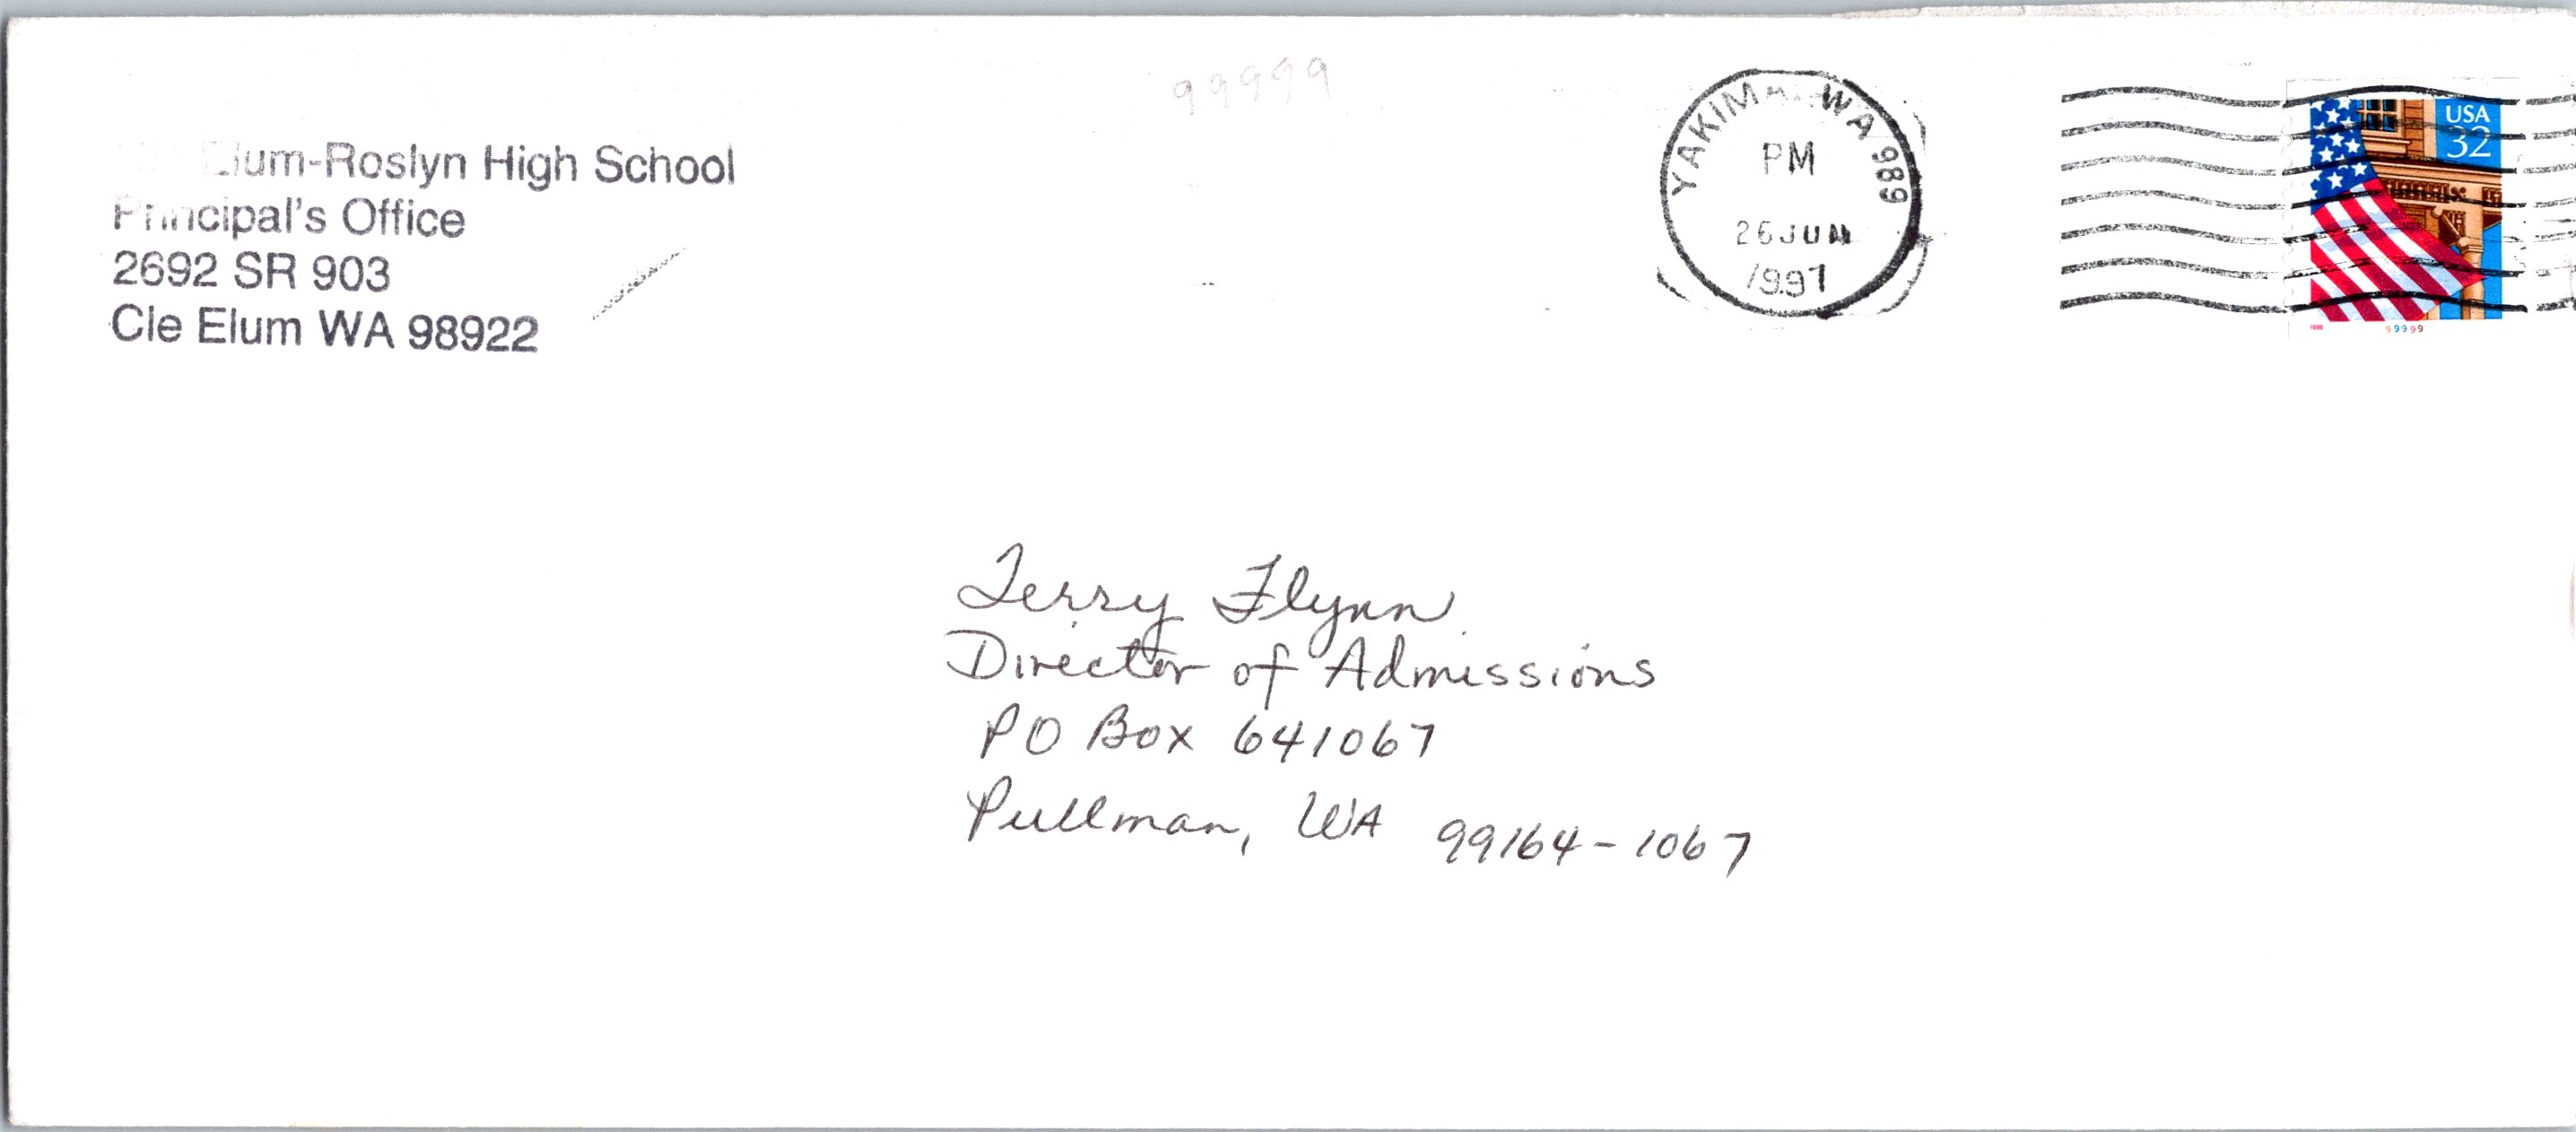 99999
Elum-Roslyn High School
Principal's Office
2692 SR 903
Cle Elum WA 98922
YAKIMA WA 989
PM
26 JUN
1997
USA
32
1996
99999
Terry Flynn
Director of Admissions
PO Box 641067
Pullman, WA 99164-1067